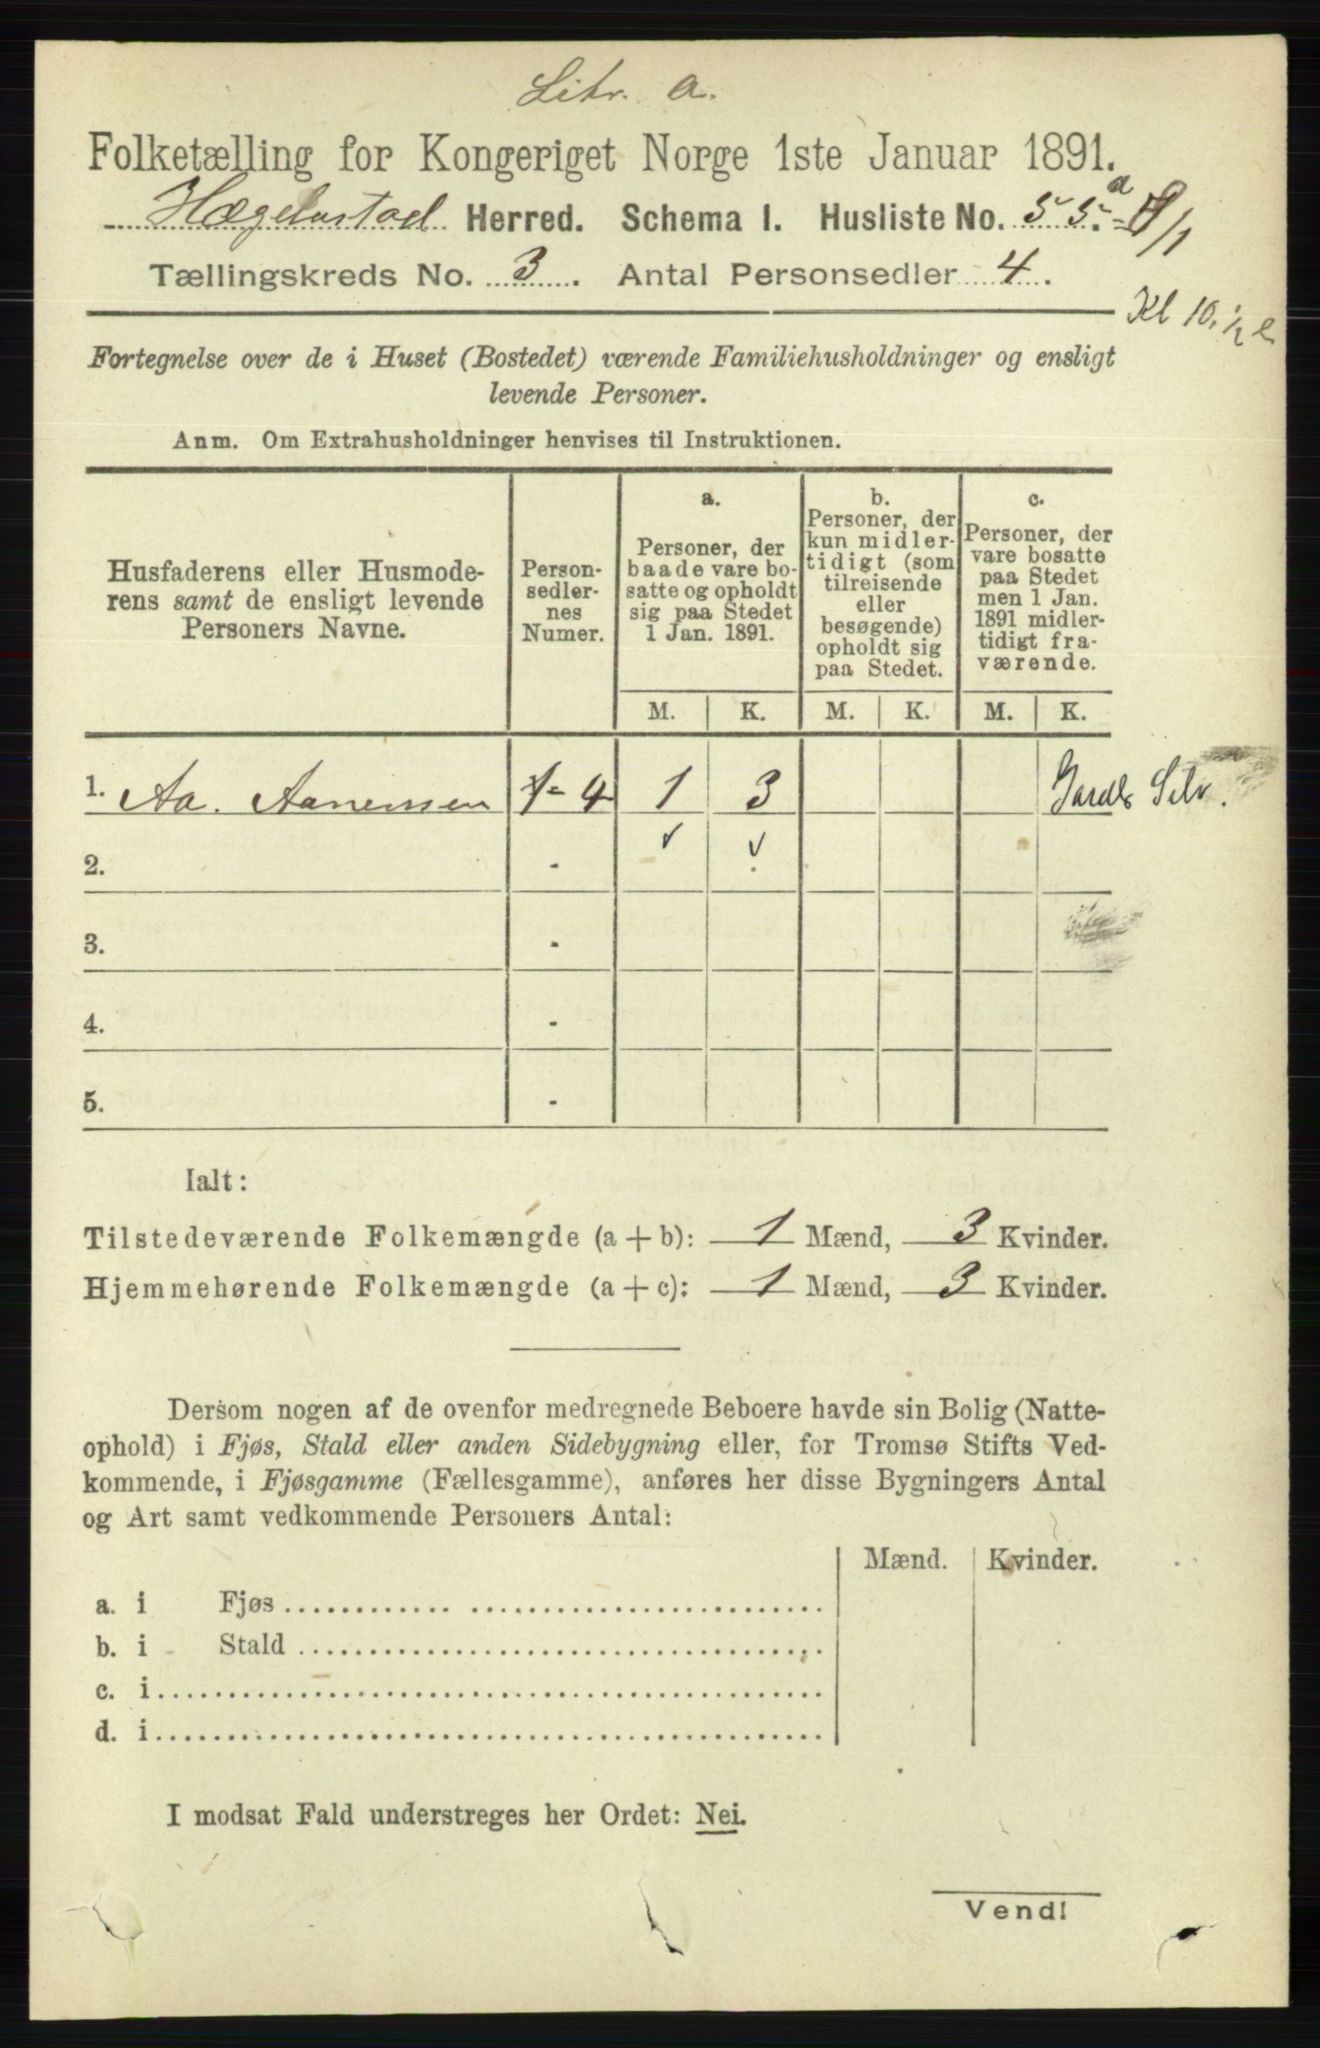 Litr. a.
Folketælling for Kongeriget Norge 1ste Januar 1891.
Hægebostad Herred. Schema 1. Husliste No. 55. a
Tællingskreds No. 3. Antal Personsedler 4.
Kl 10. ½ e
Fortegnelse over de i Huset (Bostedet) værende Familiehusholdninger og ensligt
levende Personer.
Anm. Om Extrahusholdninger henvises til Instruktionen.
Husfaderens eller Husmode-
rens samt de ensligt levende
Personers Navne.
Person-
sedler-
nes
Numer.
a.
Personer, der
baade vare bo-
satte og opholdt
sig paa Stedet
1 Jan. 1891.
b.
Personer, der
kun midler-
tidigt (som
tilreisende
eller
besøgende)
opholdt sig
paa Stedet.
c.
Personer, der
vare bosatte
paa Stedet
men 1 Jan.
1891 midler-
tidigt fra-
værende.
M. K. M. K. M. K.
1. Aa. Aanensen 1-4 1 3 Gaardb Selv.
2. -
3. -
4. -
5. -
Ialt:
Tilstedeværende Folkemængde (a+b): 1 Mænd, 3 Kvinder.
Hjemmehørende Folkemængde (a+c): 1 Mænd, 3 Kvinder.
Dersom nogen af de ovenfor medregnede Beboere havde sin Bolig (Natte-
ophold) i Fjøs, Stald eller anden Sidebygning eller, for Tromsø Stifts Ved-
kommende, i Fjøsgamme (Fællesgamme), anføres her disse Bygningers Antal
og Art samt vedkommende Personers Antal:
Mænd. Kvinder.
a. i Fjøs
b. i Stald
c. i
d. i
I modsat Fald understreges her Ordet: Nei.
Vend!